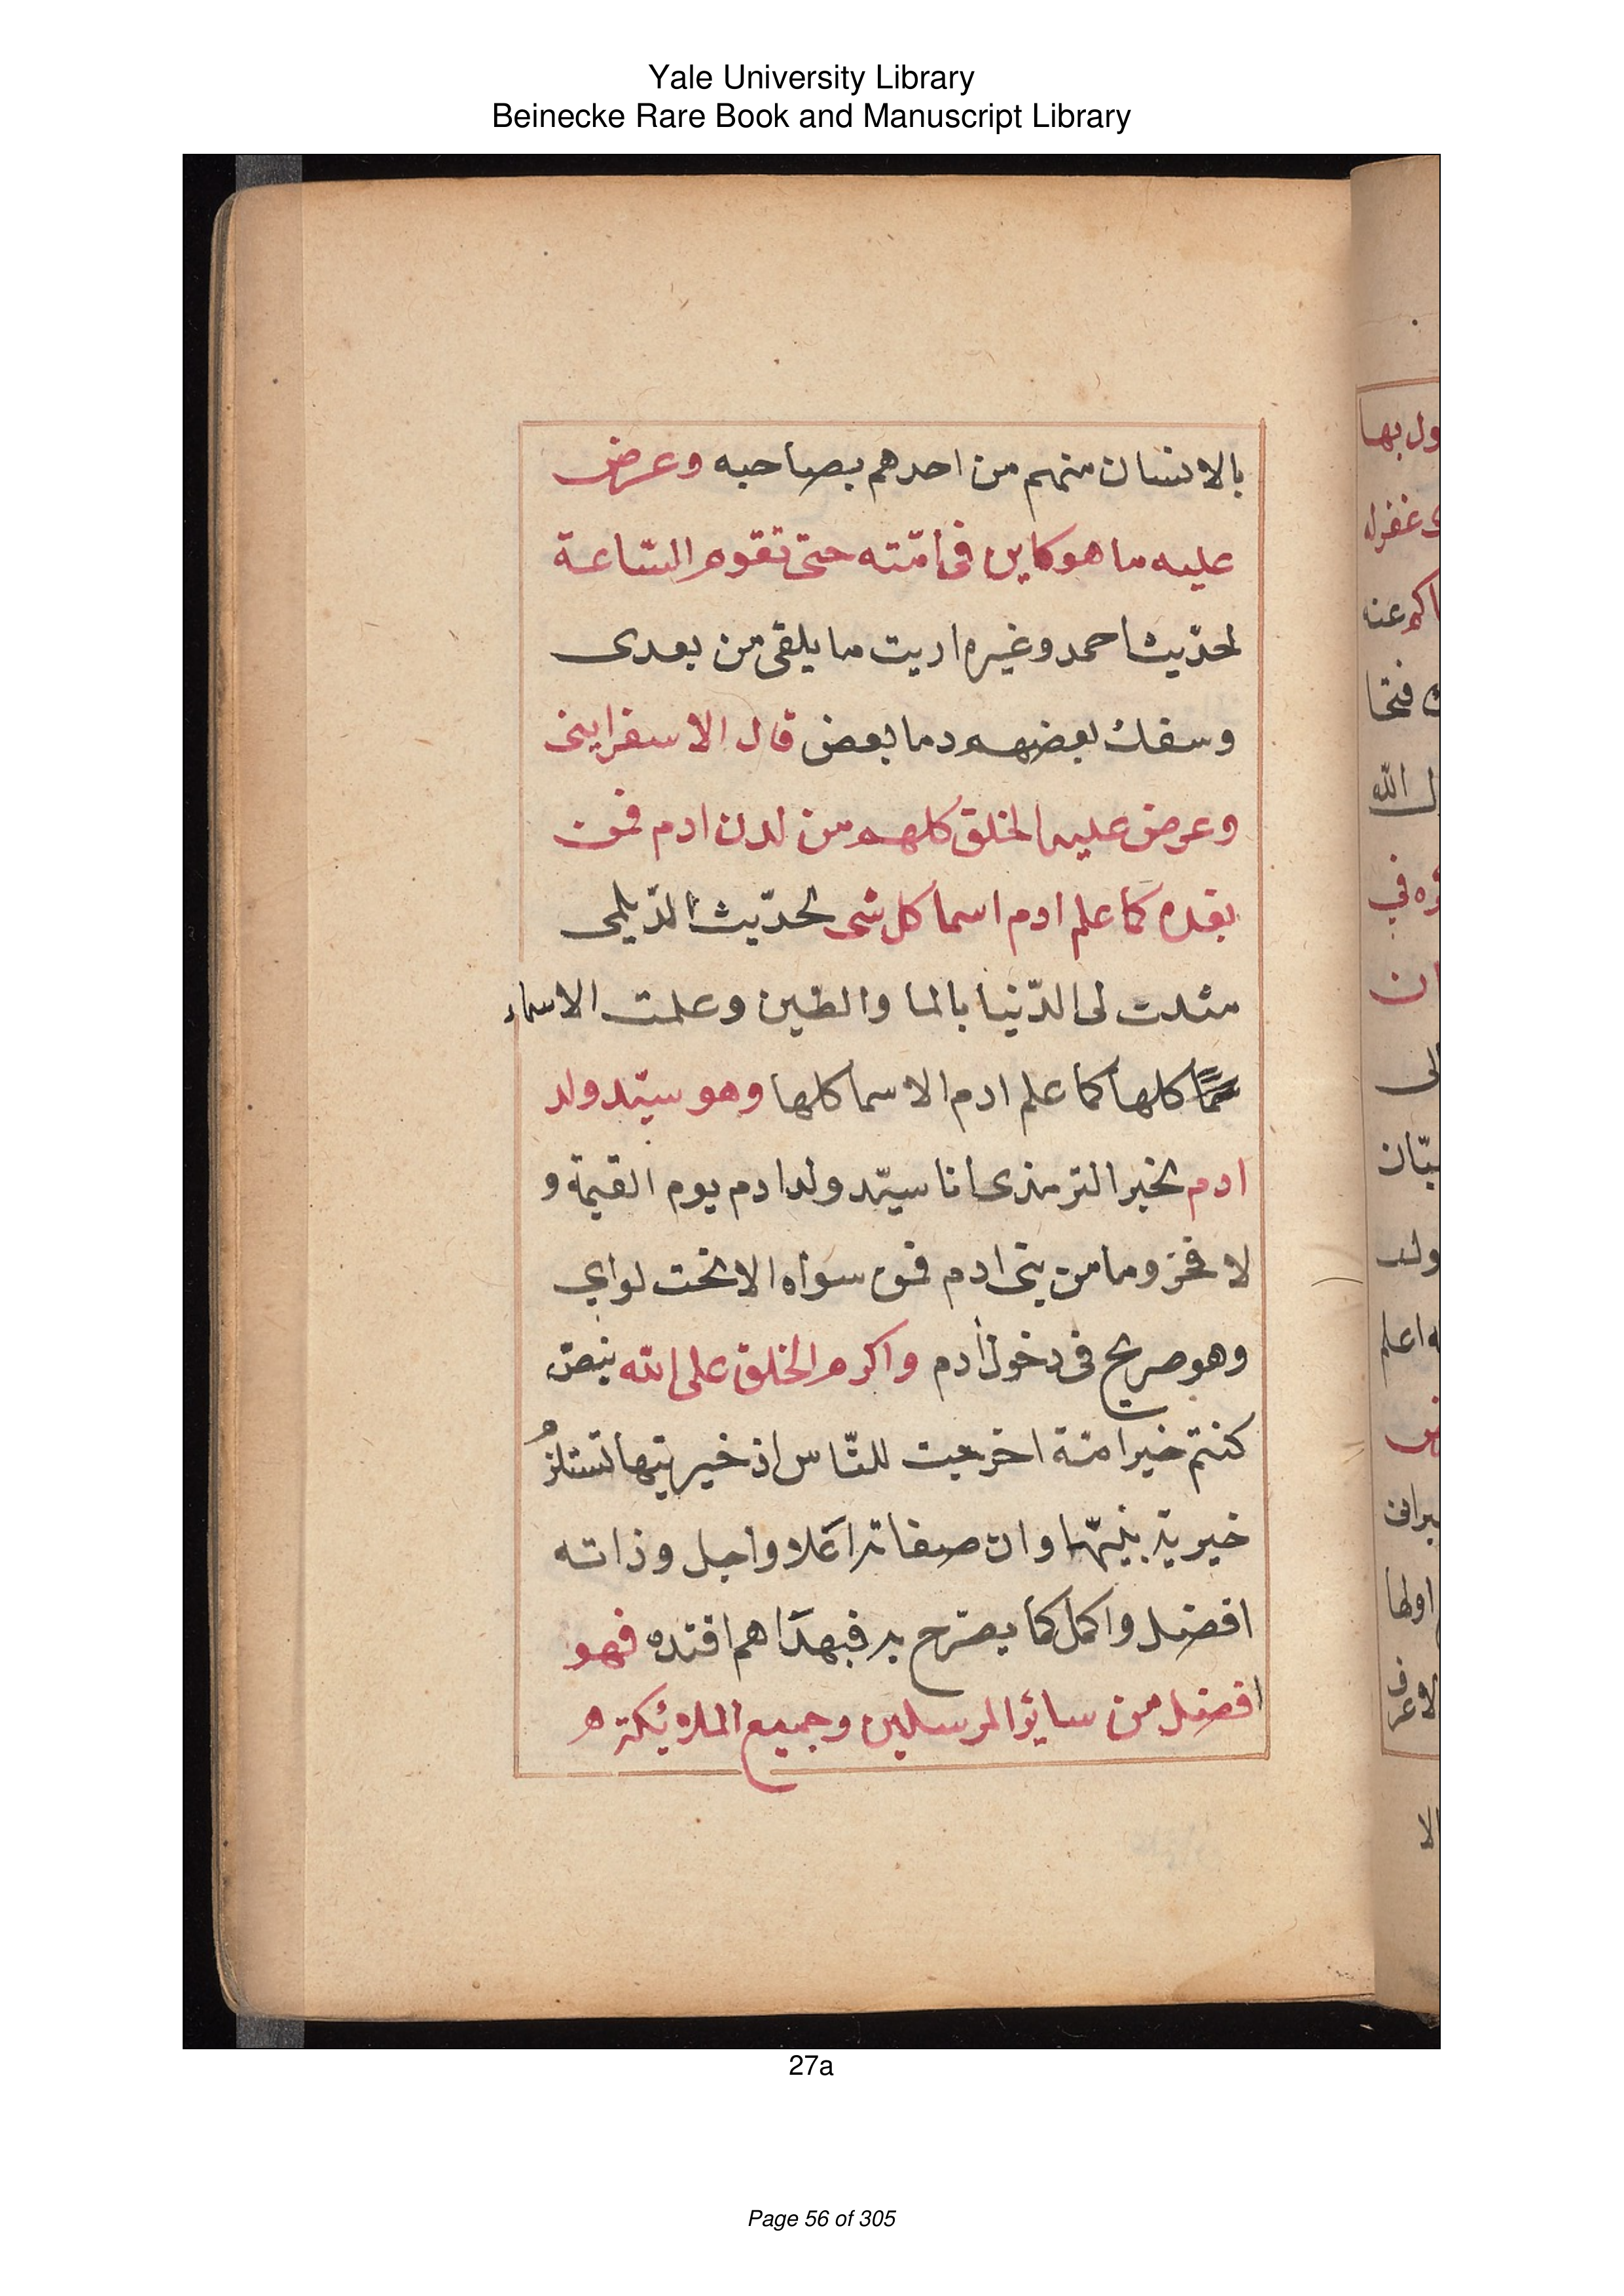 Yale University Library
Beinecke Rare Book and Manuscript Library
بالانسان منهم من احدهم بصاحبه وعرض
عليه ما هو كاين فى امّته حتى تقوم السّاعة
لحدّيث احمد وغيره اريت ما يلقى من بعدى
وسفك بعضهم دما بعض قال الاسفراينى
وعرض عليه الخلق كلهم من لدن ادم فمن
بعده كما علم ادم اسما كل شى لحدّيث الدّيلمى
مثلت لى الدّنيا بالما والطين وعلمت الاسماء
كلها كما علم ادم الاسما كلها وهو سيّد ولد
ادم لخبر الترمذى انا سيّد ولد ادم يوم القيمة و
لا فخر وما من بنى ادم فمن سواه الا تحت لواي
وهو صريح فى دخول أدم واكرم الخلق على الله بنصّ
كنتم خير امّة اخرجت للنّاس اذ خيريتها تستلزمُ
خيرية نبيّها وان صفاته اعلا واجل وذاته
افضل واكمل كما يصرّح به فبهدَاهم اقتده فهو
افضل من سائر المرسلين وجميع الملائكة ه
ول بها
غفرله
اكم عنه
فتحا
الله
وه في
ان
لى
ولد
اعلم
اولها
الا
27a
Page 56 of 305